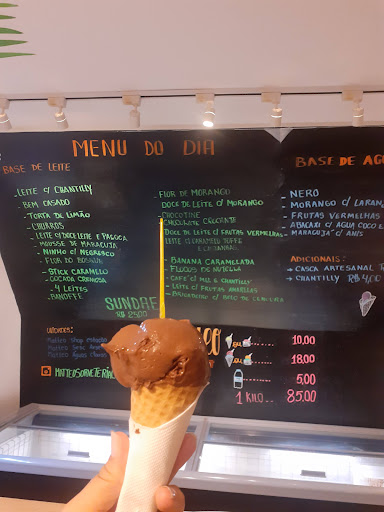 MENU DO DIA
BASE DE LEITE
- LEITE C/ CHANTILLY
- BEM CASADO
- TORTA DE LIMÃO
- CHURROS
- LEITE C/ DOCE LEITE E PAÇOCA
- MOUSSE DE MARACUJÁ
- NINHO C/ NEGRESCO
- FLOR DO BOSQUE
- STICK CARAMELO
- COCADA CREMOSA
- 4 LEITES
- BANOFFE
- FLOR DE MORANGO
DOCE DE LEITE C/ MORANGO
- CHOCOTINE
- CHOCOLATE CROCANTE
DOCE DE LEITE C/ FRUTAS VERMELHAS
LEITE C/ CARAMELO TOFFE
- BANANA CARAMELADA
- FLOCOS DE NUTELLA
- CAFÉ C/ MEL & CHANTILLY
- LEITE C/ FRUTAS AMARELAS
SUNDAE
R$ 25,00
BASE DE AG
- NERO
- MORANGO C/ LARAN
- FRUTAS VERMELHAS
- ABACAXI C/ ÁGUA COCO E
- MARACUJÁ C/ ANIS
ADICIONAIS:
→ CASCA ARTESANAL
→ CHANTILLY R$ 4,00
10,00
18,00
5,00
1 KILO 85,00
UNIDADES: